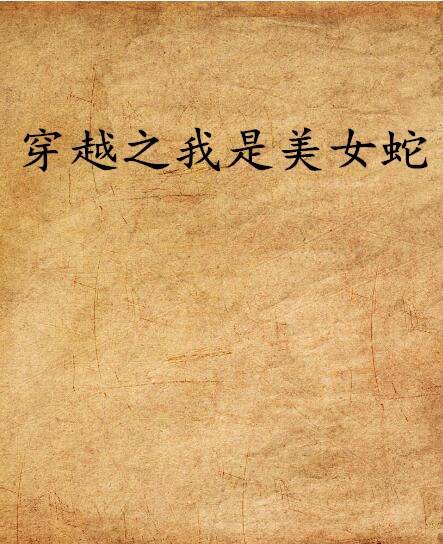 穿越之我是美女蛇